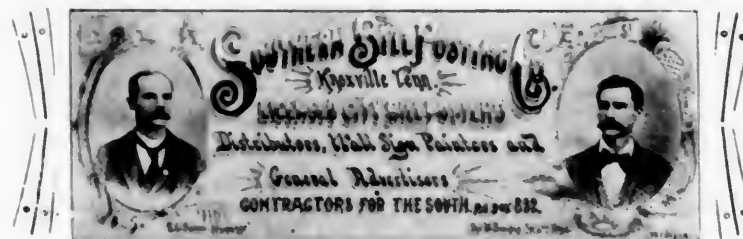 Southern Bill Posting Co.
Knoxville Tenn.
Licensed City Bill Posters
Distributors, Wall Sign Painters and
General Advertisers
CONTRACTORS FOR THE SOUTH. P.O. BOX 832.